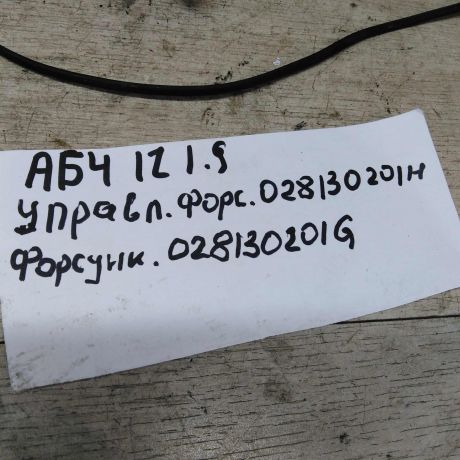 АБЧ 1Z 1.9
управл. форс. 028130201H
форсунк. 028130201G